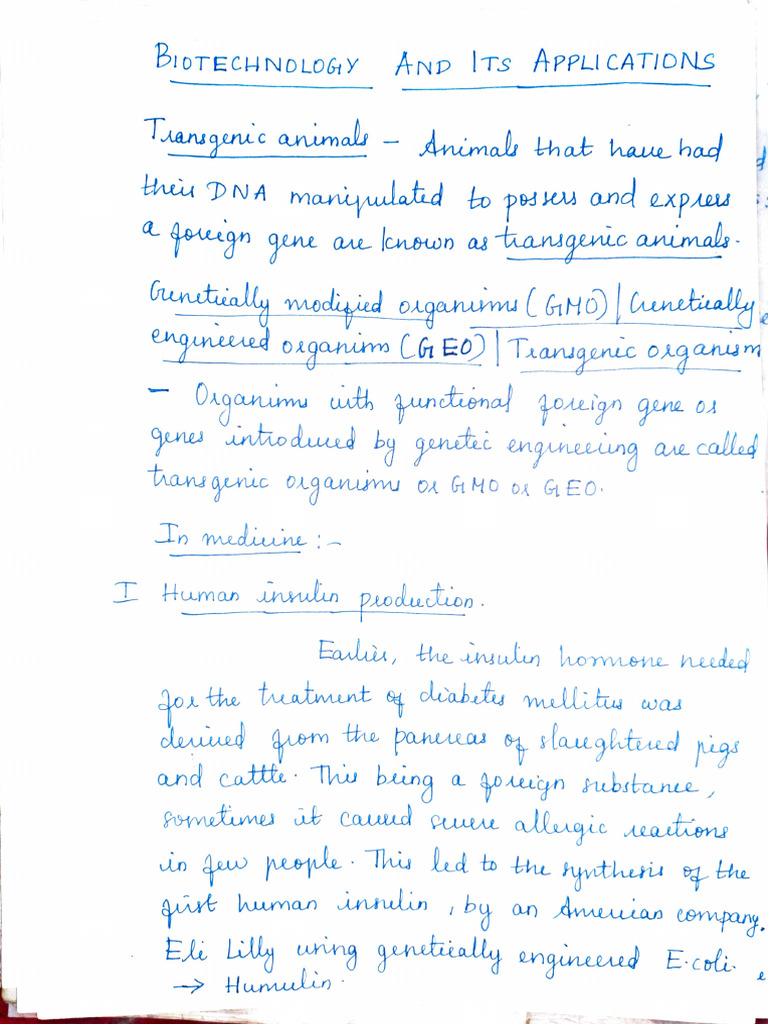 BIOTECHNOLOGY AND ITS APPLICATIONS
Transgenic animals - Animals that have had
their DNA manipulated to possess and express
a foreign gene are known as transgenic animals.
Genetically modified organisms (GMO) | Genetically
engineered organism (GEO) | Transgenic organism
- Organisms with functional foreign gene or
genes introduced by genetic engineering are called
transgenic organisms or GMO or GEO.
In medicine :-
I Human insulin production.
Earlier, the insulin hormone needed
for the treatment of diabetes mellitus was
derived from the pancreas of slaughtered pigs
and cattle. This being a foreign substance,
sometimes it caused severe allergic reactions
in few people. This led to the synthesis of the
first human insulin, by an American company.
Eli Lilly using genetically engineered E.coli.
→ Humulin.